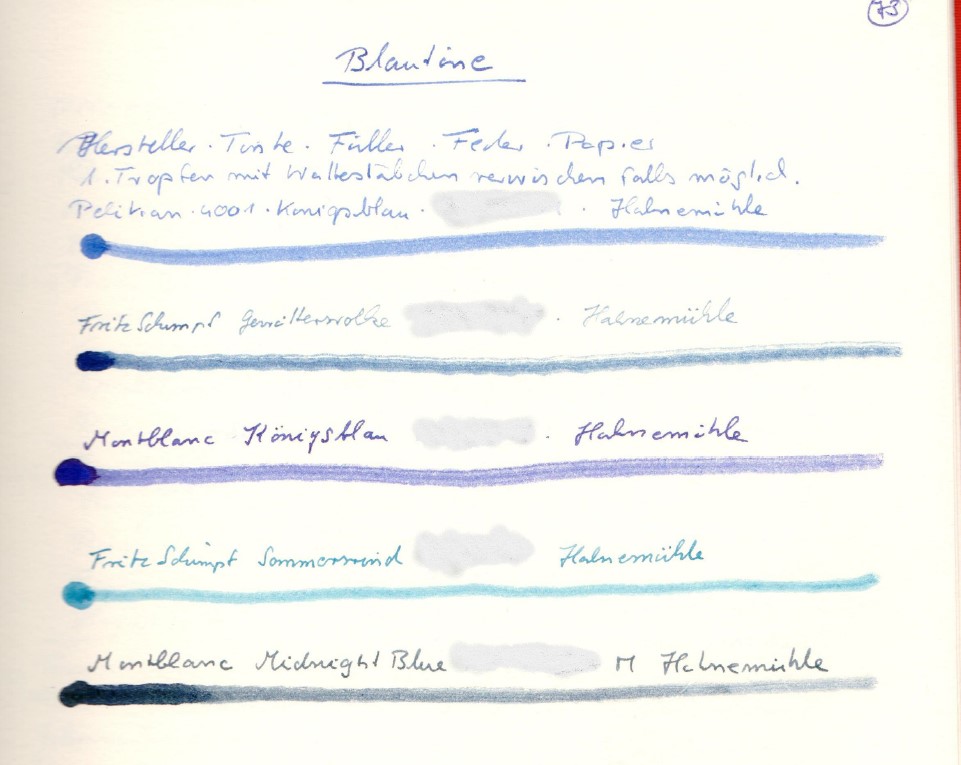 73
Blautöne
Hersteller · Tinte · Füller · Feder · Papier
1. Tropfen mit Wattestäbchen verwischen falls möglich.
Pelikan · 4001 · Königsblau · · Hahnemühle
Fritz Schimpf Gewitterwolke · Hahnemühle
Montblanc Königsblau · Hahnemühle
Fritz Schimpf Sommerwind Hahnemühle
Montblanc Midnight Blue M Hahnemühle